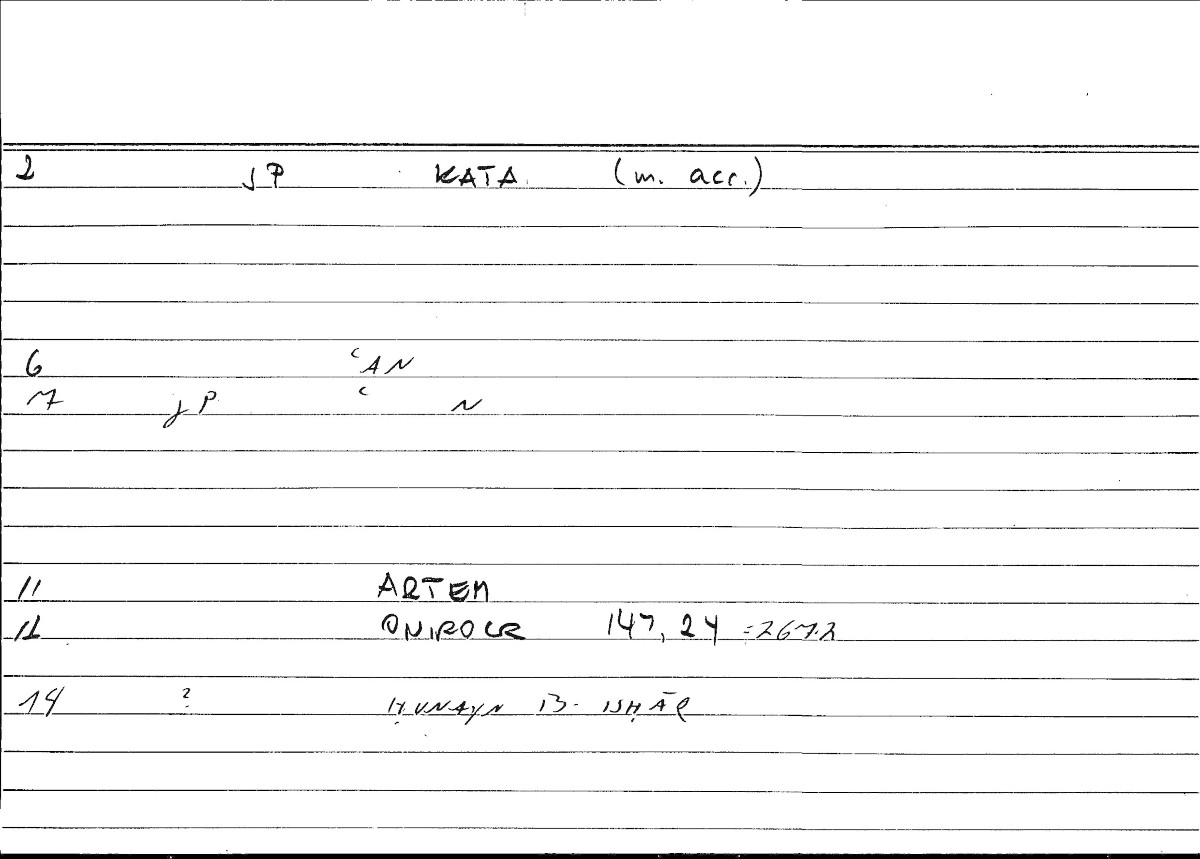 2 JP KATA (m. acc.)
6 ʿAN
7 JP ʿ N
11 ARTEM
12 ONIROCR 147, 24 = 267.2
14 ? ḤUNAYN B. ISḤĀQ